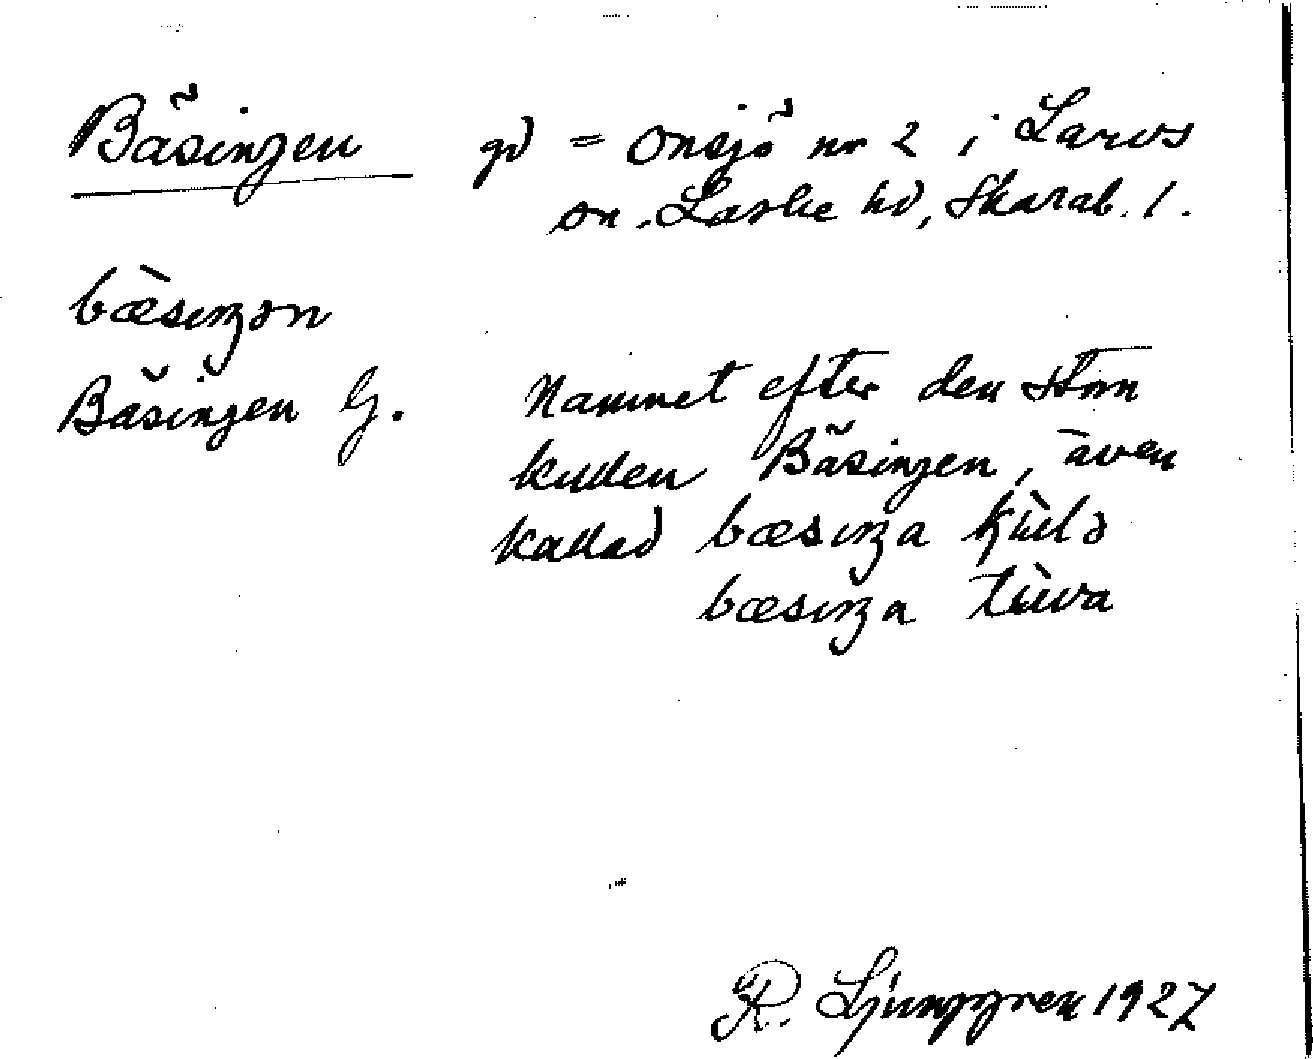 Bäsingen gd = Onsjö nr 2 i Larvs
sn. Laske hd, Skarab. l.
bæ̀sıŋən
Bäsingen G. Namnet efter den stora
kullen Bäsingen, även
kallad bæsıŋa kùlə
bæsıŋa tùva
R. Ljunggren 1927